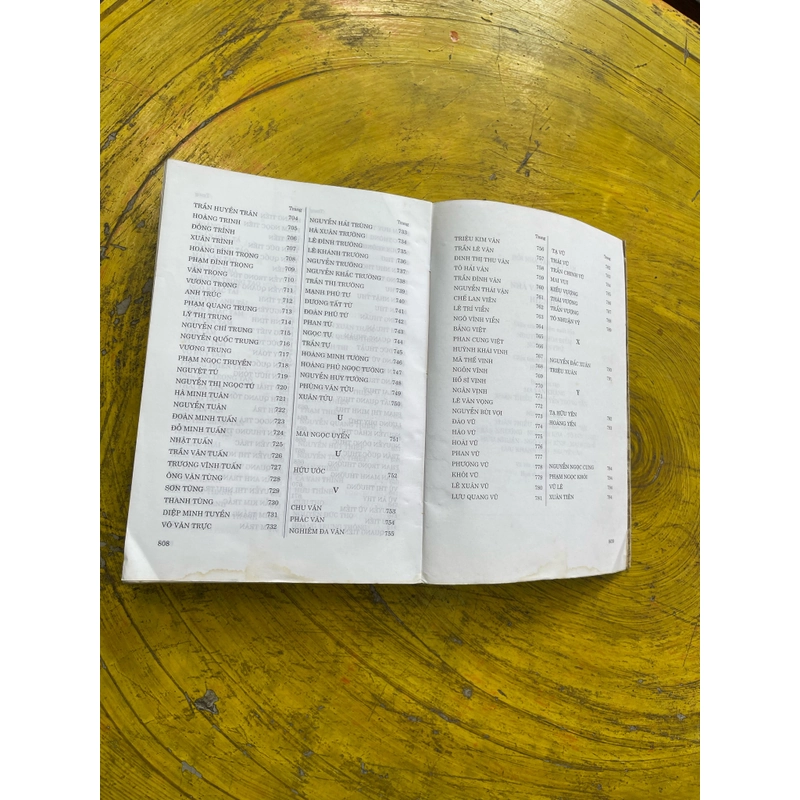 Trang
TRẦN HUYỀN TRÂN 704
HOÀNG TRINH 705
ĐÔNG TRÌNH 706
XUÂN TRÌNH 707
HOÀNG BÌNH TRỌNG 708
PHẠM ĐÌNH TRỌNG 709
VĂN TRỌNG 710
VƯƠNG TRỌNG 711
ANH TRÚC 712
PHẠM QUANG TRUNG 713
LÝ THỊ TRUNG 714
NGUYỄN CHÍ TRUNG 715
NGUYỄN QUỐC TRUNG 716
VƯƠNG TRUNG 717
PHẠM NGỌC TRUYỀN 718
NGUYỆT TÚ 719
NGUYỄN THỊ NGỌC TÚ 720
HÀ MINH TUÂN 721
NGUYỄN TUÂN 722
ĐOÀN MINH TUẤN 723
ĐỖ MINH TUẤN 724
NHẬT TUẤN 725
TRẦN VĂN TUẤN 726
TRƯƠNG VĨNH TUẤN 727
ÔNG VĂN TÙNG 728
SƠN TÙNG 729
THANH TÙNG 730
DIỆP MINH TUYỀN 731
VÕ VĂN TRỰC 732
808
Trang
NGUYỄN HẢI TRỪNG 733
HÀ XUÂN TRƯỜNG
LÊ ĐÌNH TRƯỜNG
LÊ KHÁNH TRƯỜNG
NGUYỄN TRƯỜNG
NGUYỄN KHẮC TRƯỜNG
TRẦN THỊ TRƯỜNG 739
MẠNH PHÚ TƯ 740
DƯƠNG TẤT TỪ 741
ĐOÀN PHÚ TỨ 742
PHAN TỨ 743
NGỌC TỰ 744
TRẦN TỰ 745
HOÀNG MINH TƯỜNG 746
HOÀNG PHỦ NGỌC TƯỜNG 747
NGUYỄN HUY TƯỞNG 748
PHÙNG VĂN TỬU 749
XUÂN TỬU 750
U
MAI NGỌC UYỂN 751
Ư
HỮU ƯỚC 752
V
CHU VĂN 753
PHÁC VĂN 754
NGHIÊM ĐA VĂN 755
Trang
TRIỆU KIM VĂN 756
TRẦN LÊ VĂN 757
ĐINH THỊ THU VÂN 758
TÔ HẢI VÂN 759
TRẦN ĐÌNH VÂN 760
NGUYỄN THÁI VẬN 761
CHẾ LAN VIÊN 762
LÊ TRÍ VIỄN 763
NGÔ VĨNH VIỄN 764
BẰNG VIỆT 765
PHAN CUNG VIỆT 766
HUỲNH KHẢI VINH 767
MÃ THẾ VINH 768
NGÔN VĨNH 769
HỒ SĨ VỊNH 770
NGÂN VỊNH 771
LÊ VĂN VỌNG 772
NGUYỄN BÙI VỢI 773
ĐÀO VŨ 774
HÀO VŨ 775
HOÀI VŨ 776
PHAN VŨ 777
PHƯỢNG VŨ 778
KHÔI VŨ 779
LÊ XUÂN VŨ 780
LƯU QUANG VŨ 781
Trang
TẠ VŨ
THÁI VŨ
TRẦN CHINH VŨ
MAI VUI
KIỀU VƯỢNG
THÁI VƯỢNG
TRẦN VƯỢNG
TÔ NHUẬN VỸ
X
NGUYỄN BẮC XUÂN
TRIỆU XUÂN
Y
TẠ HỮU YÊN
HOÀNG YẾN
NGUYỄN NGỌC CUNG
PHẠM NGỌC KHÔI
VŨ LÊ
XUÂN TIÊN